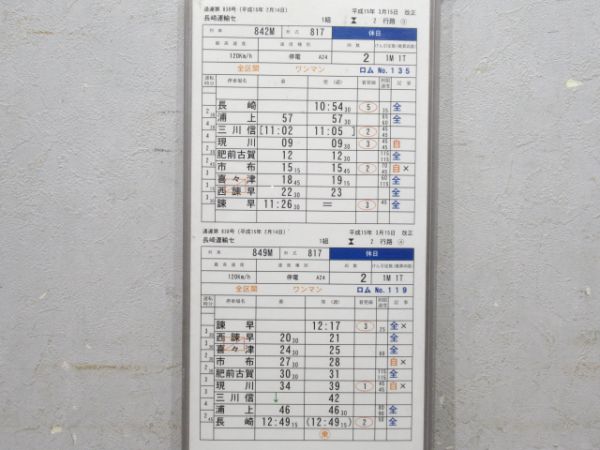 達第 830号 (平成15年 2月14日) 平成15年 3月15日 改正
長崎運輸セ 1組 2 行路 ③
列車 842M 形式 817 休日
最高速度 両数
120Km/h 停電 A24 2 1M 1T
全区間 ワンマン ロム No.135
停車場名 着 発 (通) 着発線 記事
長崎 10:54 30 5 35 全
浦上 57 57 30 全
三川信 [11:02 11:05 ] 2
現川 09 09 30 3 自
肥前古賀 12 12 30 全
市布 15 15 15 45 2 自×
喜々津 18 45 19 15 全
西諫早 22 30 23 全
諫早 11:26 30 = 3 45
達第 830号 (平成15年 2月14日) 平成15年 3月15日 改正
長崎運輸セ 1組 2 行路 ④
列車 849M 形式 817 休日
最高速度 両数
120Km/h 停電 A24 2 1M 1T
全区間 ワンマン ロム No.119
停車場名 着 発 (通) 着発線 記事
諫早 12:17 3 全×
西諫早 20 30 21 全
喜々津 24 30 25 全
市布 27 30 28 自×
肥前古賀 30 30 31 全
現川 34 39 1 自×
三川信 ↓ 42 全
浦上 46 46 30 全
長崎 12:49 15 (12:49 15) 2 全